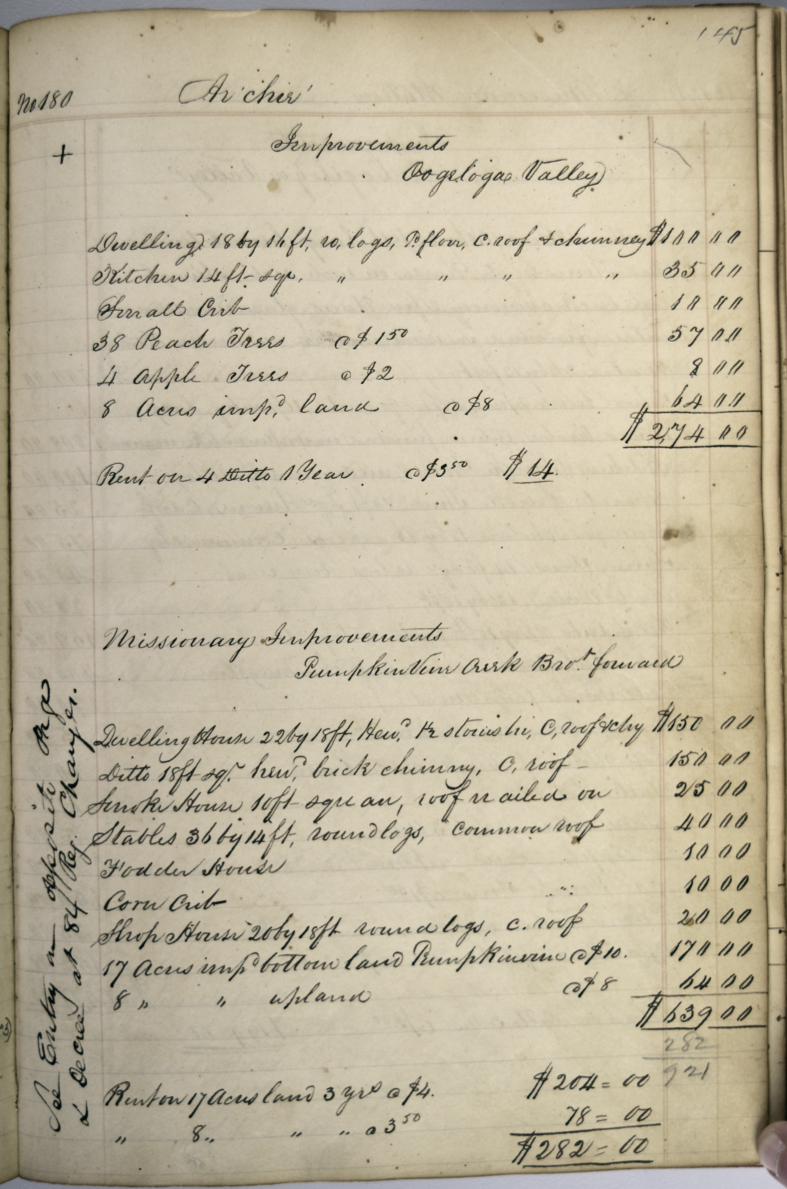 145
No 180 Ar'chie'
+
Improvements
Oogeloga Valley
Dwelling 18 by 16 ft, ro, logs, P. floor, C. roof & chimney $100 00
Kitchen 14 ft sqr. " " " " 35 00
Small Crib 10 00
38 Peach Trees @ $1 50 57 00
4 Apple Trees @ $2 8 00
8 Acres imp.d land @ $8 64 00
$274 00
Rent on 4 Ditto 1 Year @ $3 50 $14.
Missionary Improvements
Pumpkin Vine Creek Bro.t forward
Dwelling House 22 by 18 ft, Hew.d C, roof & chy $150 00
Ditto 18 ft sq.r hew.d brick chimny, C, roof 150 00
Smoke House 10 ft square, roof nailed on 25 00
Stables 36 by 14 ft, round logs, common roof 40 00
Fodder House 10 00
Corn Crib 10 00
Shop House 20 by 18 ft round logs, c. roof 20 00
17 Acres imp.d bottom land Pumpkinvine @ $10. 170 00
8 " " upland @ $8 64 00
$639 00
282
921
Rent on 17 Acres land 3 yrs @ $4. $204 = 00
" 8 " " " @ 3 50 78 = 00
$282 = 00
See Entry on opposite page
& Decree at 84 Reg. Charges.